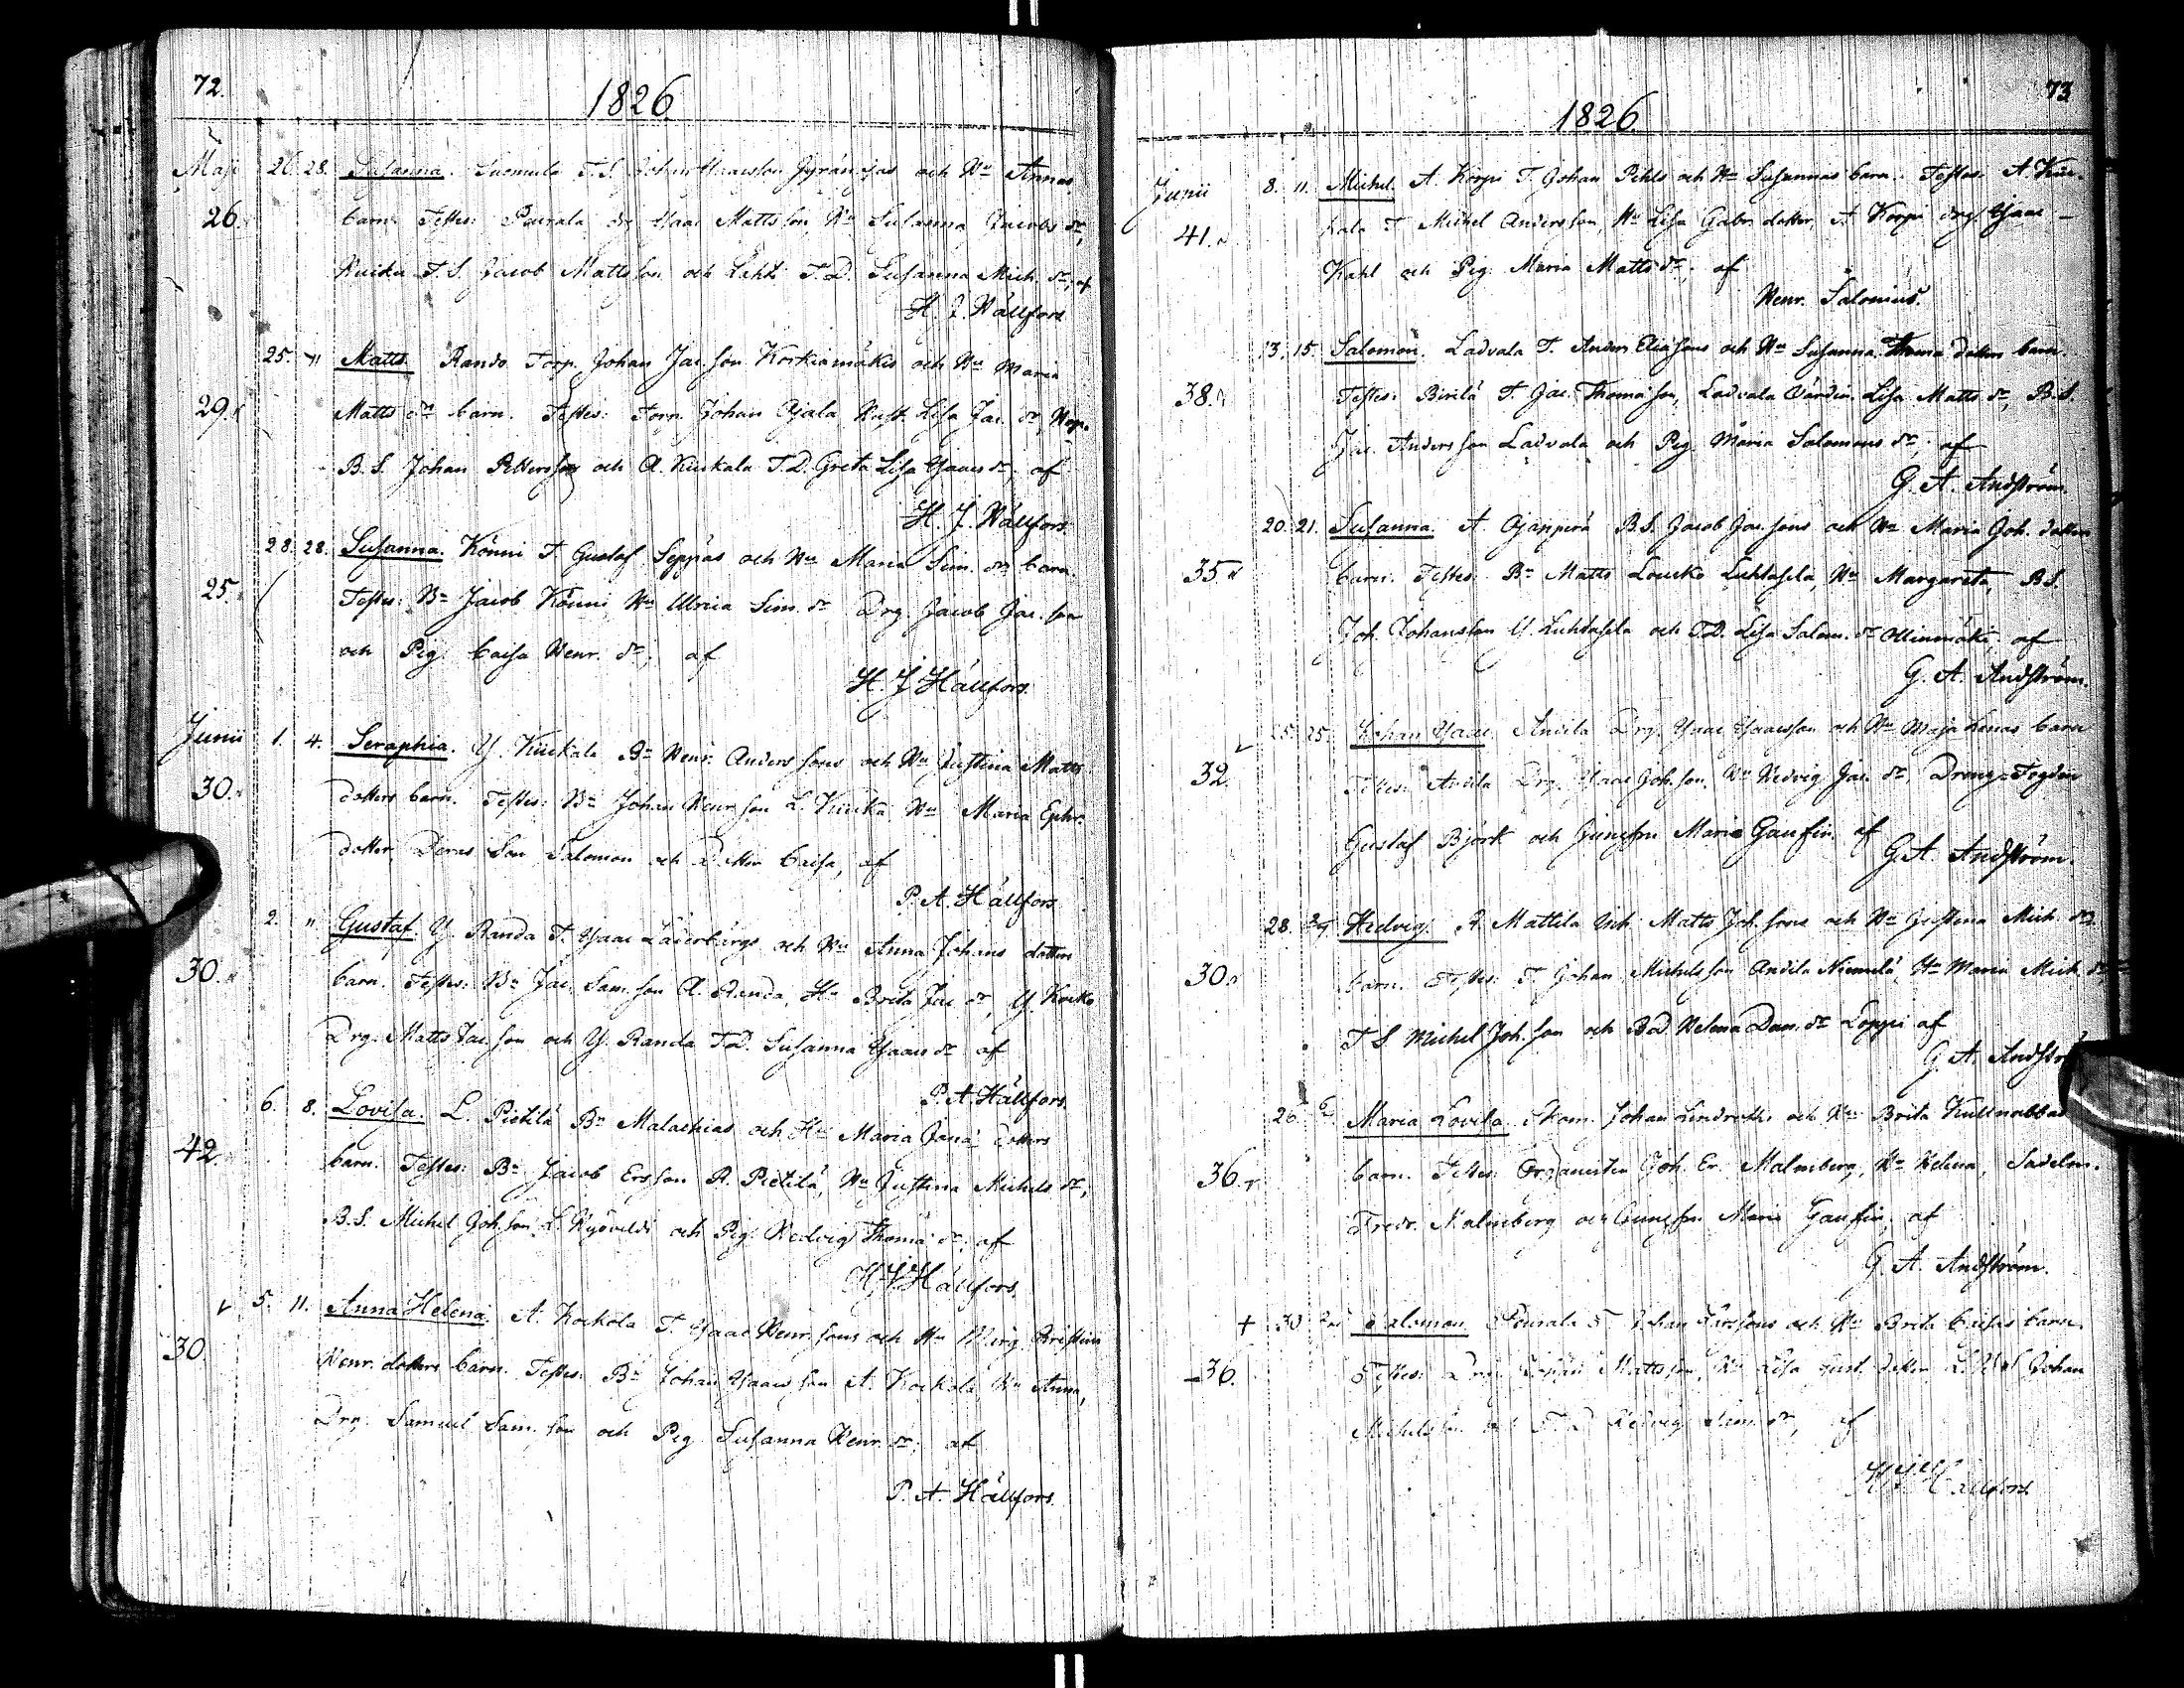 72.
1826
Maji 26. 28. Susanna. Suomela T.S. Johan Isacsson Gyränojas och Hu Annas
26. barn. Testes: Pourala drg Isaac Mattsson Hu Susanna Jacobs dr,
Kuika T.S. Jacob Mattsson och Lahti T.D. Susanna Mich. dr, af
H. J. Hällfors
25. " Matts. Rando Torp. Johan Jac. son Korkiamäkis och Hu Maria
29. Matts drs barn. Testes: Torp. Johan Ojala Hust. Lisa Jac. dr,
B.S. Johan Pettersson och A. Kuckala T.D. Greta Lisa Isaacs dr, af
H. J. Hällfors.
28. 28. Susanna. Könni T. Gustaf Seppäs och Hu Maria Sim. drs barn.
25. Testes: Bn Jacob Könni Hu Ulrica Sim. dr Drg. Jacob Jac. son
och Pig. Caisa Henr. dr, af
H. J. Hällfors.
Junii 1. 4. Seraphia. Y. Kuckala Bn Henr. Anderssons och Hu Justina Matts
30. dotters barn. Testes: Bn Johan Henr. son L. Kuuka Hu Maria Ephr.
dotter, Deras Son Salomon och Dotter Caisa, af
P. A. Hällfors.
2. " Gustaf. Y. Randa T. Isaac Läderbergs och Hu Anna Johans dotters
30. barn. Testes: Bn Jac. Sam. son A. Randa, Hu Brita Jac. dr, Y. Kocko
Drg. Matts Jac. son och Y. Randa T.D. Susanna Isaacs dr af
P. A. Hällfors.
6. 8. Lovisa. L. Pietilä Bn Malachias och Hu Maria Jana dotters
42. barn. Testes: Bn Jacob Ersson R. Pietilä, Hu Justina Michels dr,
B.S. Michel Joh. son L. och Pig. Hedvig Thoma dr, af
H. J. Hällfors.
5. 11. Anna Helena. A. Kockola T. Isaac Henr. sons och Hu Marg. Christina
30. Henr. dotters barn. Testes: Bn Johan Isaacsson A. Kockola, Hu Anna,
Drg. Samuel Sam. son och Pig. Susanna Henr. dr, af
P. A. Hällfors.
73
1826.
Junii 8. 11. Michel. A. Korpi T. Johan Pihls och Hu Susannas barn. Testes: A. Kuc-
41. kala T. Michel Andersson, Hu Lisa Gabr. dotter, A. Korpi drg Isaac
Kahl och Pig. Maria Matts dr, af
Henr. Salonius.
13. 15. Salomon. Ladvala T. Anders Eliasons och Hu Susanna Thoma dotters barn.
38. Testes: Birilä T. Jac. Thomason, Ladvala Värdin. Lisa Matts dr, B.S.
Jac. Andersson Ladvala och Pig. Maria Salomons dr, af
G. A. Andström.
20. 21. Susanna. A. Ojanperä B.S. Jacob Jac. sons och Hu Maria Joh. dotters
35. barn. Testes: Bn Matts Lousko Luhtasela, Hu Margareta, B.S.
Joh. Johansson Y. Luhtasela och T.D. Lisa Salom. dr Ollinmäki, af
G. A. Andström.
25. 25. Johan Isaac. Andila Drg. Isaac Isaacsson och Hu Maja Lenas barn
32. Testes: Andila Drg. Isaac Joh. son, Hu Hedvig Jac. dr, Dreng-Fogden
Gustaf Björk och Jungfru Maria Gaufin, af
G. A. Andström.
28. 29. Hedvig. R. Mattila Inh. Matts Joh. sons och Hu Justina Mich. drs
30. barn. Testes: T. Johan Michelsson Andila Niemelä, Hu Maria Mich. dr,
T.S. Michel Joh. son och B.D. Helena Dan. dr Loppi af
G. A. Andströ
26. Maria Lovisa. Skom. Johan Lindroths och Hu Brita Kullnabbas
36. barn. Testes: Organisten Joh. Er. Malmberg, Hu Helena, Sadelm.
Fredr. Malmberg och Jungfru Maria Gaufin, af
G. A. Andström.
+ 30 Salomon. Pourala T. Johan och Hu Brita Caisas barn.
36. Testes: Drg. Johan Mattsson, Hu Lisa Gust. dotter Johan
Michelsson och T.D. Hedvig Sim. dr, af
H. J. Hällfors